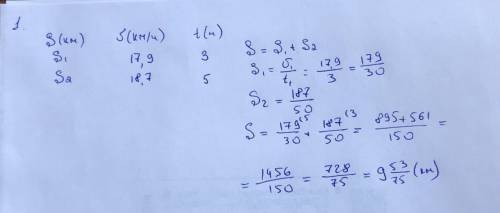 1.
S(км) V(км/ч) t(ч)
S₁ 17,9 3
S₂ 18,7 5
S = S₁ + S₂
S₁ = V₁/t₁ = 17,9/3 = 179/30
S₂ = 187/50
S = 179⁽⁵/30 + 187⁽³/50 = 895+561/150 =
= 1456/150 = 728/75 = 9 53/75 (км)